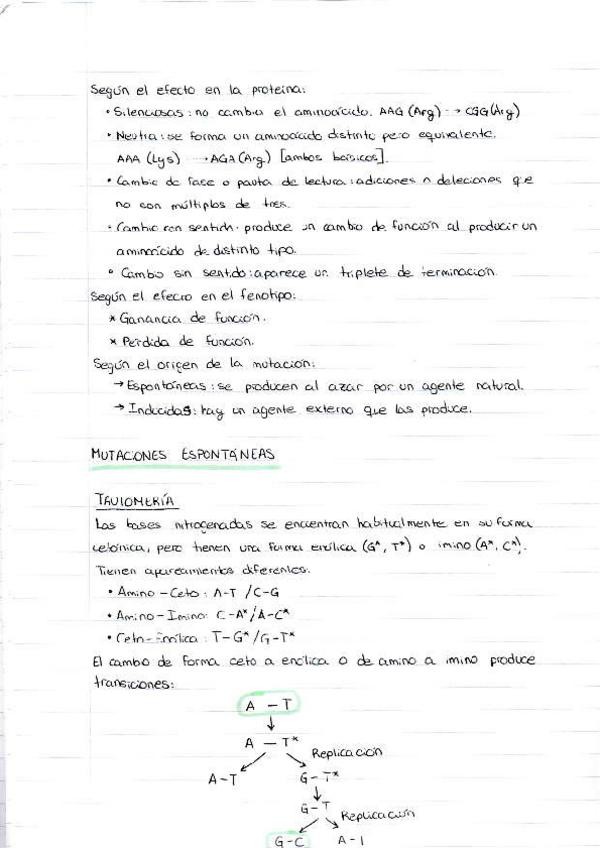 Según el efecto en la proteína:
• Silenciosas: no cambia el aminoácido. AAG (Arg) → CGG (Arg)
• Neutra: se forma un aminoácido distinto pero equivalente.
AAA (Lys) → AGA (Arg) [ambos básicos].
• Cambio de fase o pauta de lectura: adiciones o deleciones que
no son múltiplos de tres.
• Cambio con sentido: produce un cambio de función al producir un
aminoácido de distinto tipo.
• Cambio sin sentido: aparece un triplete de terminación.
Según el efecto en el fenotipo:
* Ganancia de función.
* Pérdida de función.
Según el origen de la mutación:
→ Espontáneas: se producen al azar por un agente natural.
→ Inducidas: hay un agente externo que las produce.
MUTACIONES ESPONTÁNEAS
TAUTOMERÍA
Las bases nitrogenadas se encuentran habitualmente en su forma
cetónica, pero tienen una forma enólica (G*, T*) o imino (A*, C*).
Tienen apareamientos diferentes.
• Amino - Ceto: A-T / C-G
• Amino - Imino: C-A* / A-C*
• Ceto - Enólica: T-G* / G-T*
El cambio de forma ceto a enólica o de amino a imino produce
transiciones:
A - T
↓
A - T*
Replicación
A-T G - T*
↓
G - T
Replicación
G-C A-T